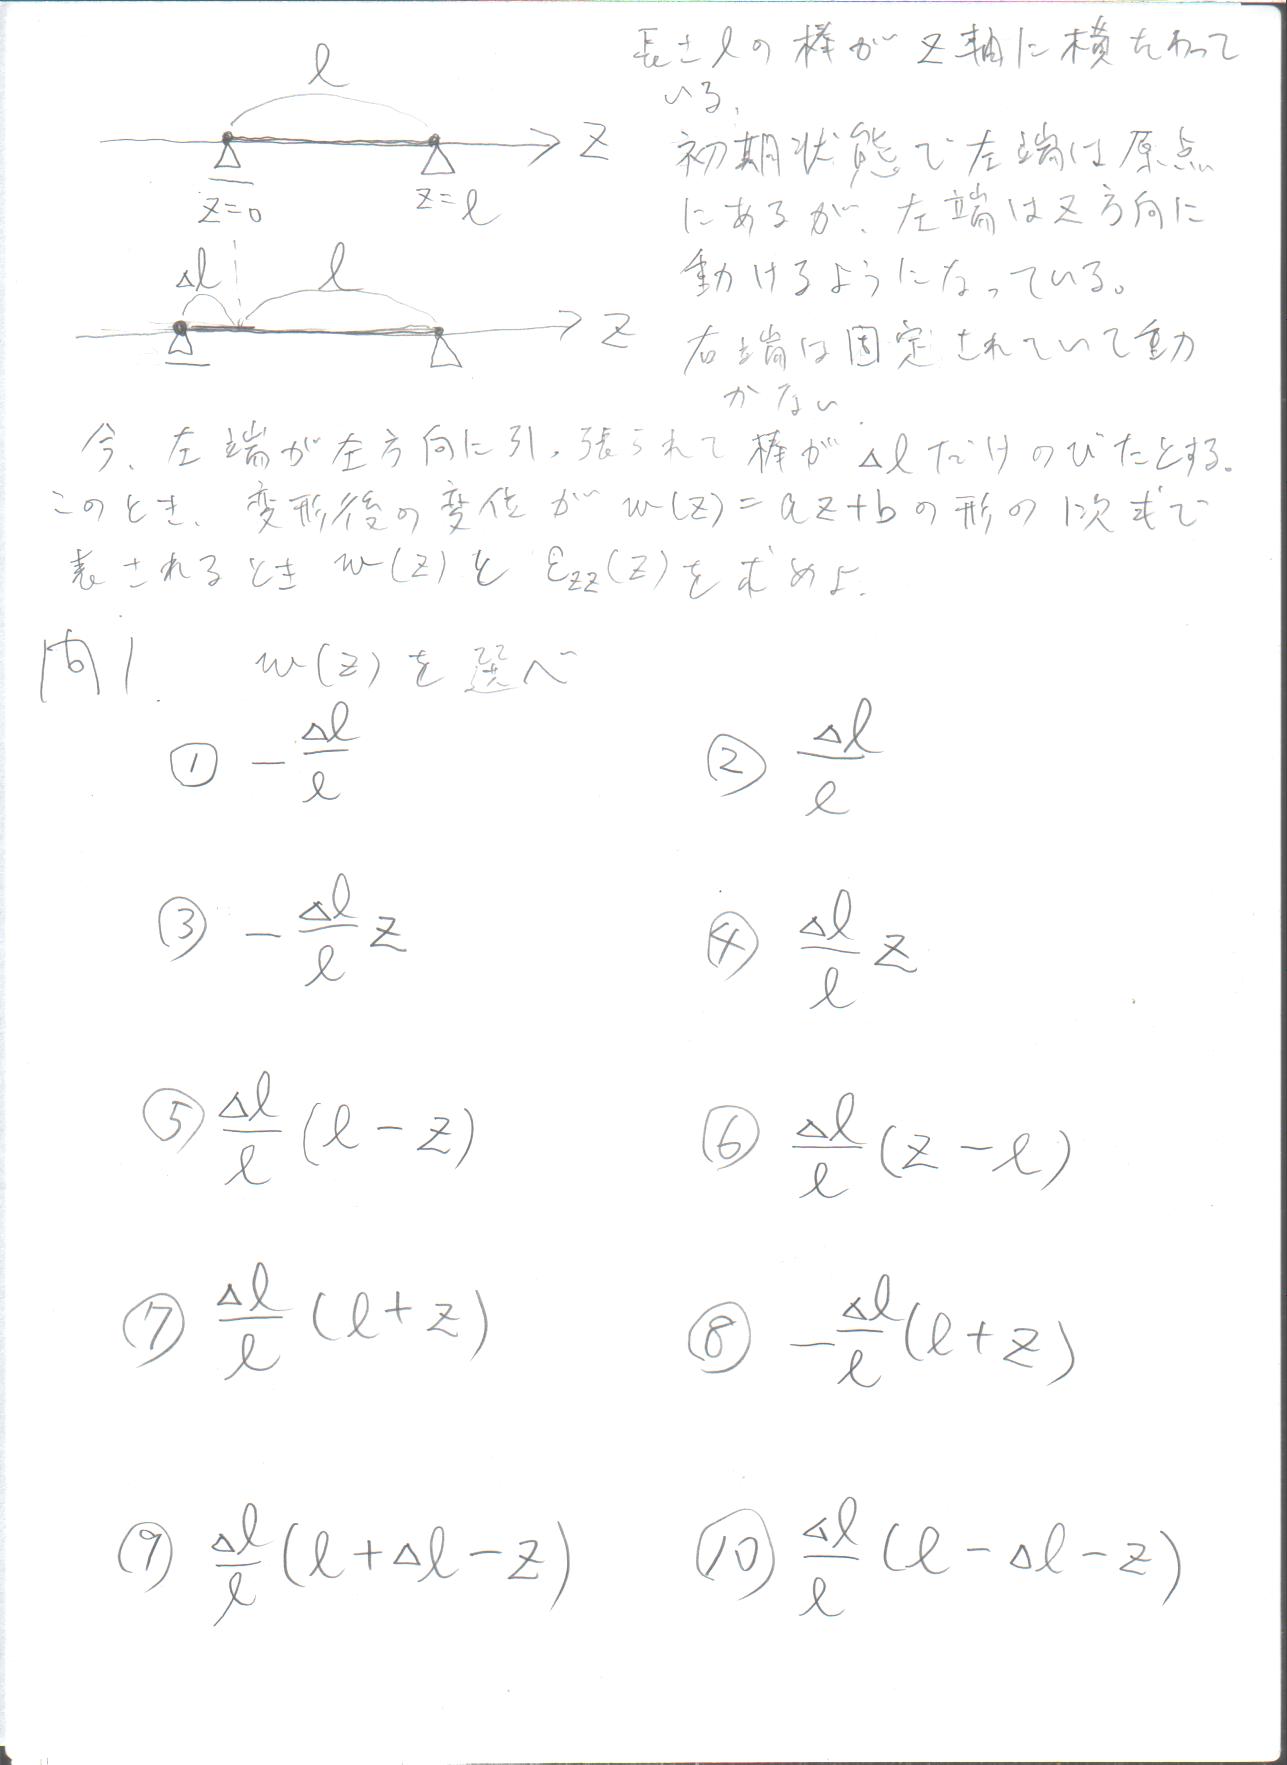 l
長さlの棒がz軸に横たわって
いる.
z
z=0
z=l
初期状態で左端は原点
にあるが、左端はz方向に
動けるようになっている。
Δl
l
z
右端は固定されていて動
かない.
今、左端が左方向に引っ張られて棒がΔlだけのびたとする。
このとき、変形後の変位がw(z)=az+bの形の1次式で
表されるときw(z)とεzz(z)を求めよ.
問1. w(z)を選べ
① -Δl/l ② Δl/l
③ -Δl/l z ④ Δl/l z
⑤ Δl/l (l-z) ⑥ Δl/l (z-l)
⑦ Δl/l (l+z) ⑧ -Δl/l (l+z)
⑨ Δl/l (l+Δl-z) ⑩ Δl/l (l-Δl-z)